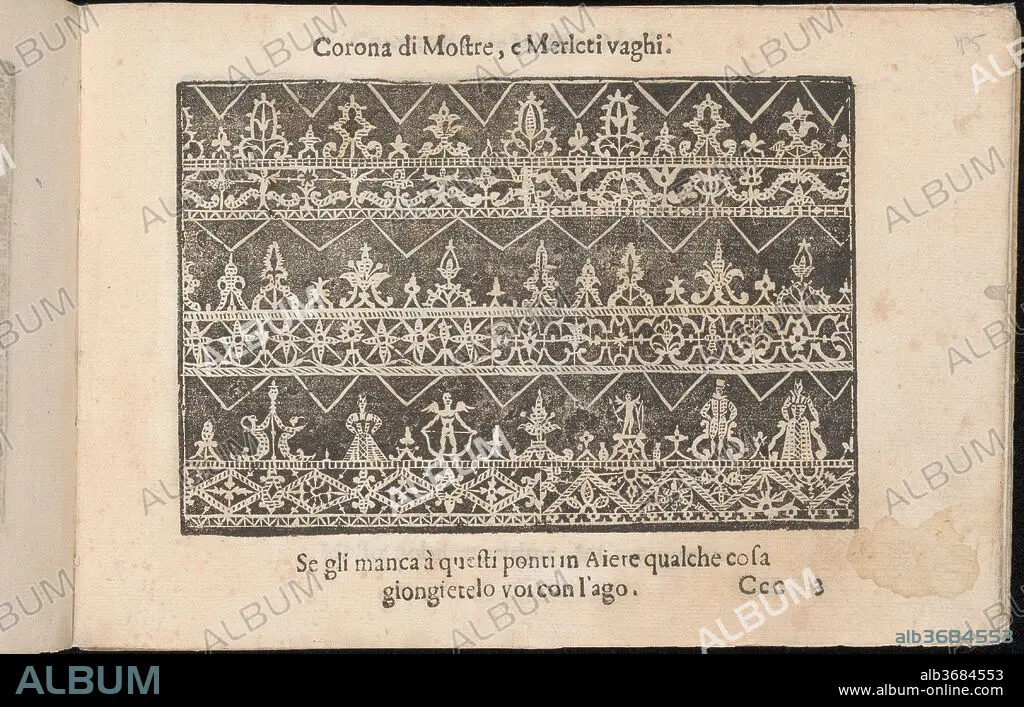 Corona di Moſtre, e Merleti vaghi.
Se gli manca à queſti ponti in Aiere qualche coſa
giongietelo voi con l'ago. Ccc 3
alb3684553
ALBUM
alb3684553
www.album-online.com